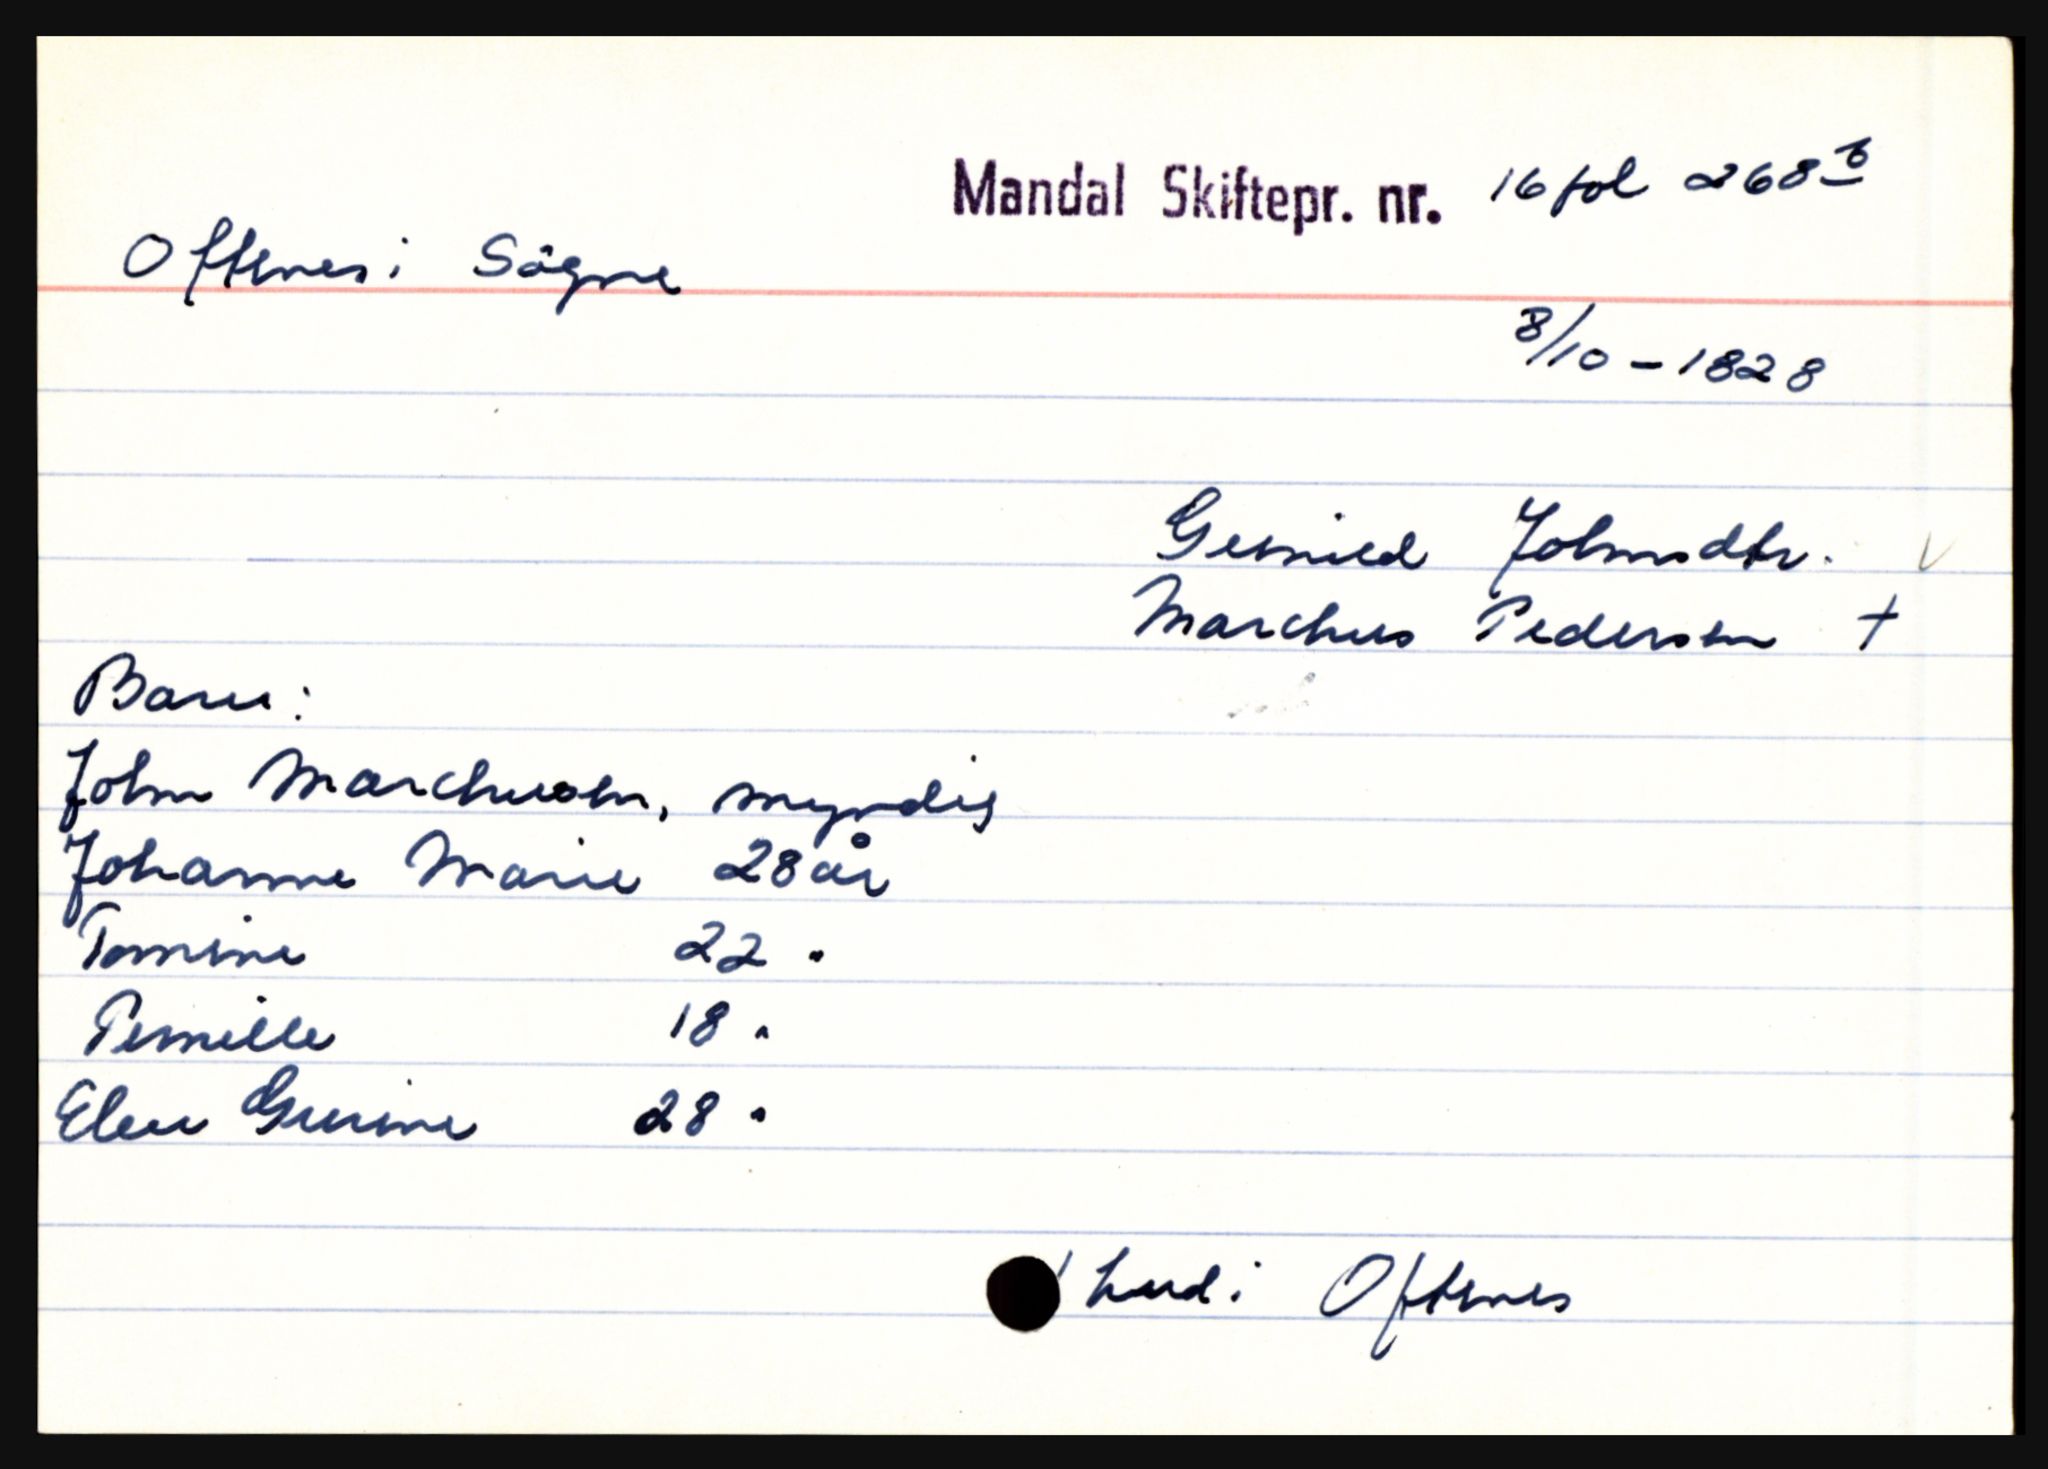 Mandal Skiftepr. nr. 16 fol 268 b
Oftenes i Sögne
8/10 - 1828
Gernild Johnsdtr. V
Marchus Pedersen +
Barn:
John Marchusen, myndig
Johanne Marie 28 år
Tomine 22 "
Pernille 18 "
Elen Gurine 28 "
hud i Oftenes